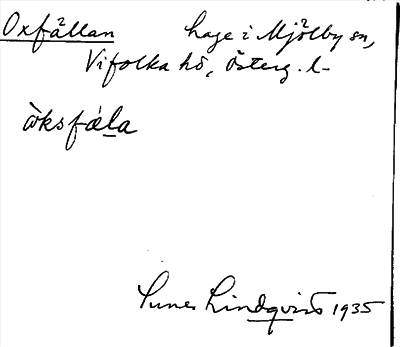 Oxfällan hage i Mjölby sn,
Vifolka hd, Österg. l-
òksfäla
Sune Lindqvist 1935